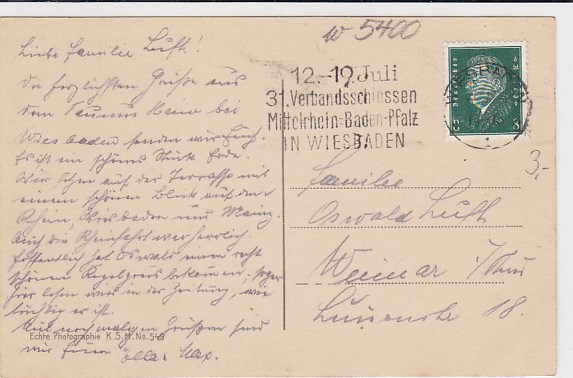 w 5400
Liebe Familie Luft!
Die herzlichsten Grüße aus
dem Taunus Heim bei
Wiesbaden senden wir Euch.
Es ist ein schönes Stück Erde.
Wir sitzen auf der Terrasse mit
einem schönen Blick auf den
Rhein, Wiesbaden und Mainz.
Auch die Rheinfahrt war herrlich
Hoffentlich hat Oswald einen recht
schönen Kegelpreis bekommen; sogar
hier lesen wir in der Zeitung, wie
tüchtig er ist.
Mit nochmaligen Grüßen sind
wir Euere
Max.
Echte Photographie K.S.M. No. 549
12.-19. Juli
31. Verbandsschiessen
Mittelrhein-Baden-Pfalz
IN WIESBADEN
DEUTSCHES REICH
8
1
3,-
Familie
Oswald Luft
Weimar i/Thür
18.